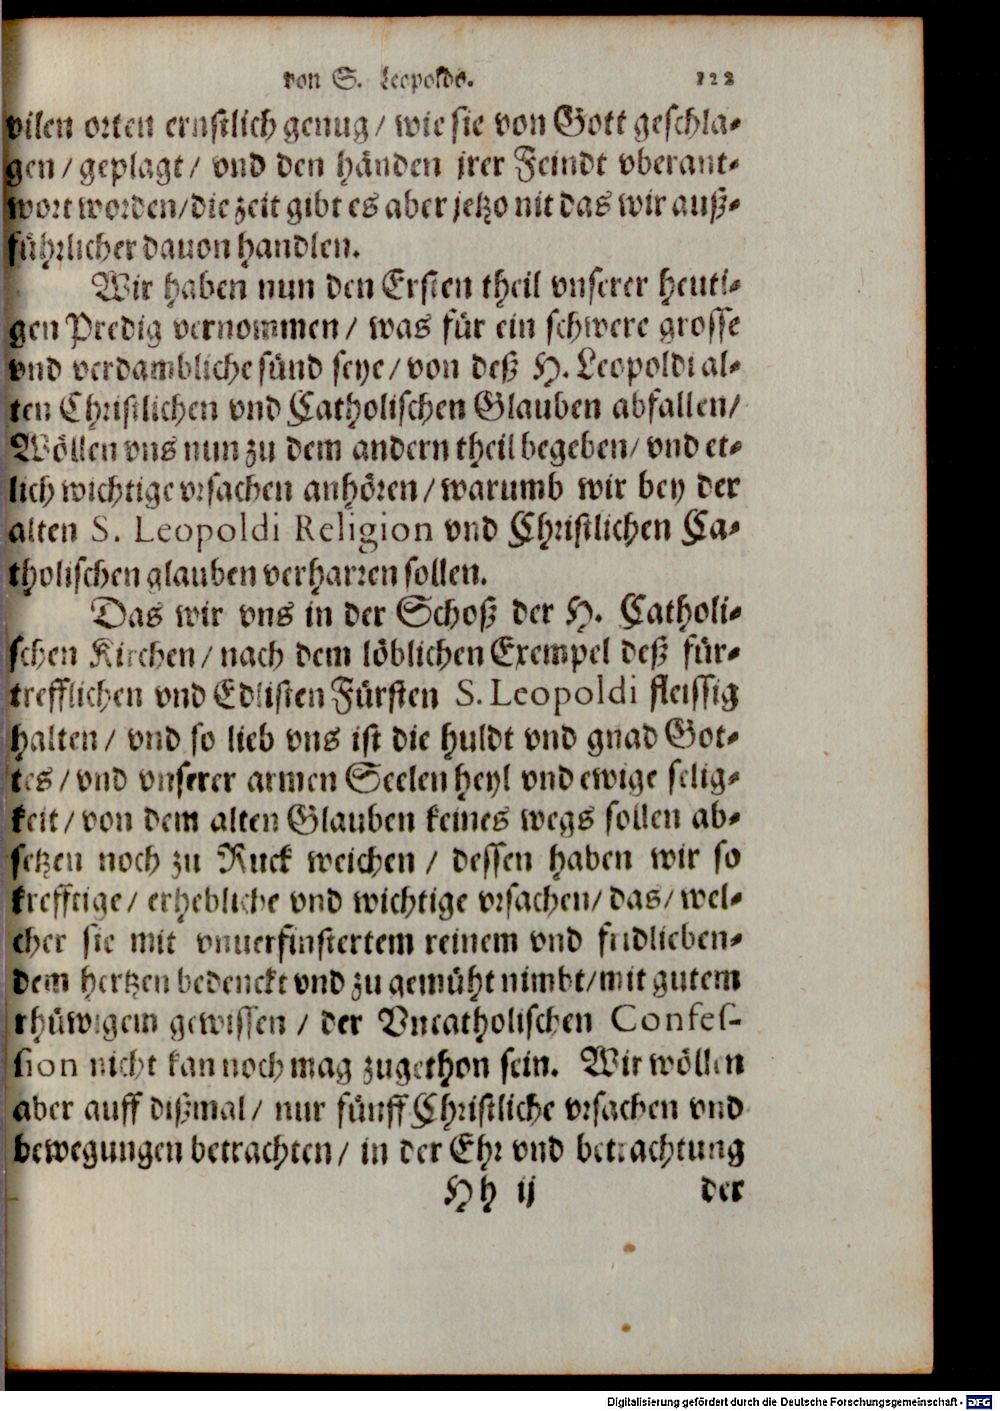 von S. Leopoldo. 122
vilen orten ernstlich genug / wie sie von Gott geschla⸗
gen / geplagt / vnd den händen jrer Feindt vberant⸗
wort worden / die zeit gibt es aber jetzo nit das wir auß⸗
führlicher dauon handlen.
Wir haben nun den Ersten theil vnserer heuti⸗
gen Predig vernommen / was für ein schwere grosse
vnd verdambliche sünd seye / von deß H. Leopoldi al⸗
ten Christlichen vnd Catholischen Glauben abfallen /
Wöllen vns nun zu dem andern theil begeben / vnd et⸗
lich wichtige vrsachen anhören / warumb wir bey der
alten S. Leopoldi Religion vnd Christlichen Ca⸗
tholischen glauben verharren sollen.
Das wir vns in der Schoß der H. Catholi⸗
schen Kirchen / nach dem löblichen Exempel deß für⸗
trefflichen vnd Edlisten Fürsten S. Leopoldi fleissig
halten / vnd so lieb vns ist die huldt vnd gnad Got⸗
tes / vnd vnserer armen Seelen heyl vnd ewige selig⸗
keit / von dem alten Glauben keines wegs sollen ab⸗
setzen noch zu Ruck weichen / dessen haben wir so
krefftige / erhebliche vnd wichtige vrsachen / das / wel⸗
cher sie mit vnuerfinstertem reinem vnd fridlieben⸗
dem hertzen bedenckt vnd zu gemüht nimbt / mit gutem
rhüwigem gewissen / der Vncatholischen Confes-
sion nicht kan noch mag zugethon sein. Wir wöllen
aber auff dißmal / nur fünff Christliche vrsachen vnd
bewegungen betrachten / in der Ehr vnd betrachtung
Hh ij der
Digitalisierung gefördert durch die Deutsche Forschungsgemeinschaft - DFG